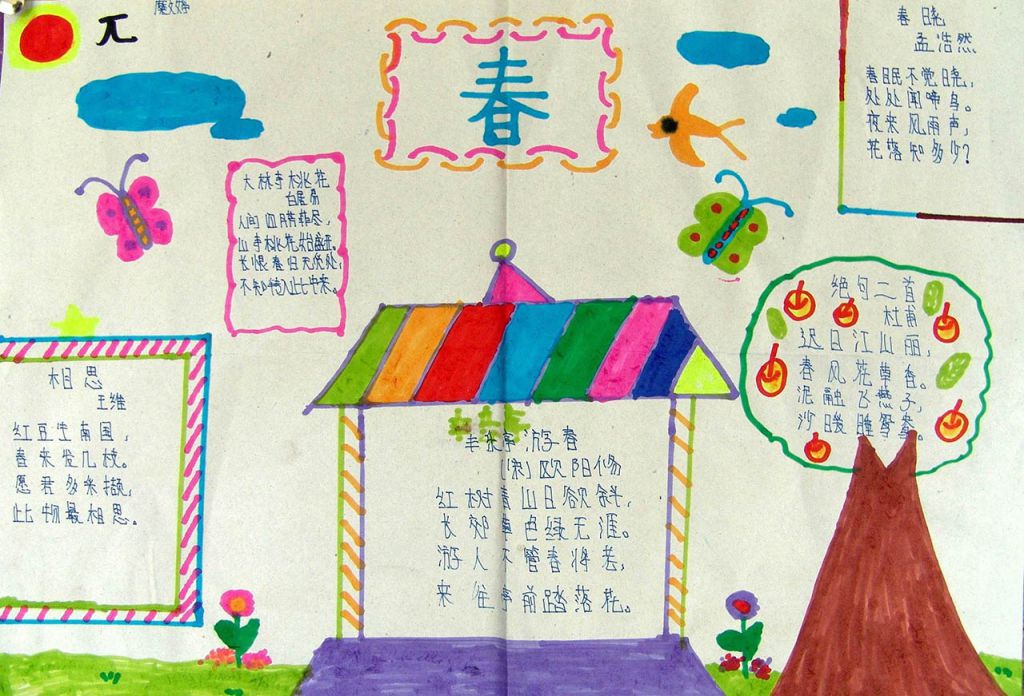 兀
春
春晓
孟浩然
春眠不觉晓,
处处闻啼鸟。
夜来风雨声,
花落知多少?
大林寺桃花
白居易
人间四月芳菲尽,
山寺桃花始盛开。
长恨春归无觅处,
不知转入此中来。
相思
王维
红豆生南国,
春来发几枝。
愿君多采撷,
此物最相思。
丰乐亭游春
(宋)欧阳修
红树青山日欲斜,
长郊草色绿无涯。
游人不管春将老,
来往亭前踏落花。
绝句二首
杜甫
迟日江山丽,
春风花草香。
泥融飞燕子,
沙暖睡鸳鸯。